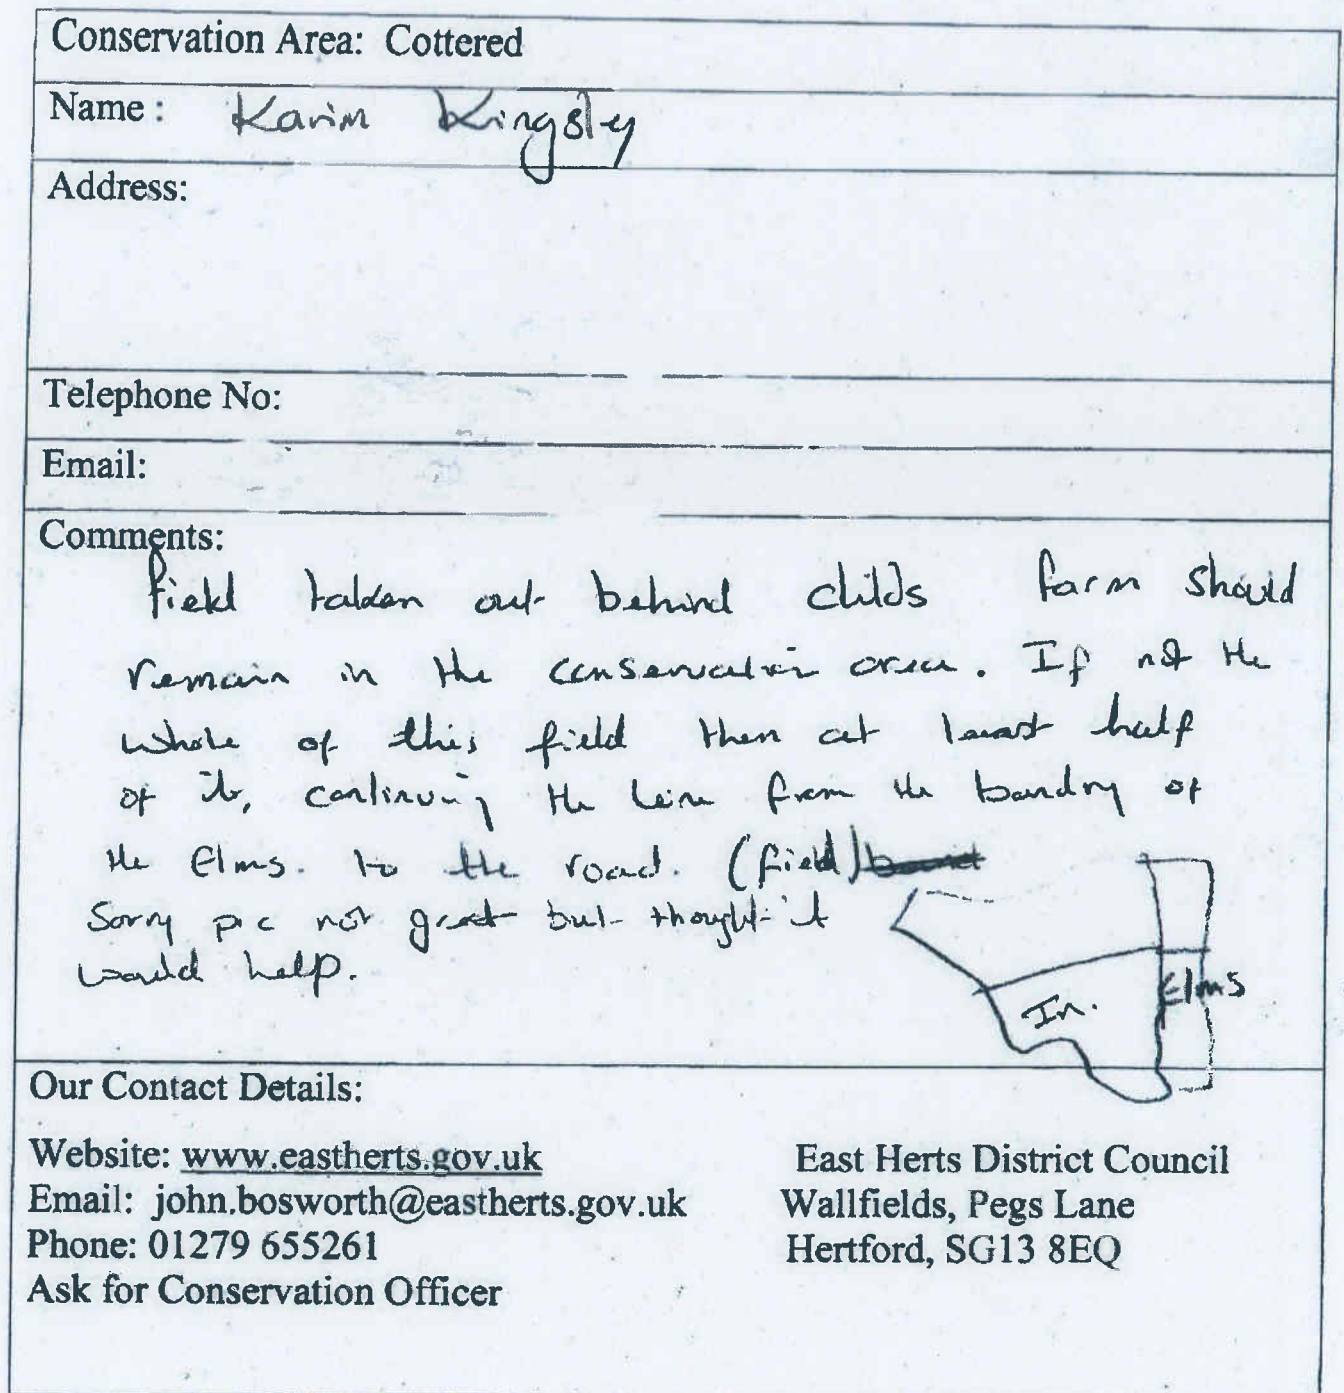 Conservation Area: Cottered
Name: Karim Kingsley
Address:
Telephone No:
Email:
Comments:
field taken out behind childs farm should
remain in the conservation area. If not the
whole of this field then at least half
of it, continuing the line from the bandry of
the Elms. to the road. (field)
Sorry pic not great but thought it
would help.
In.
Elms
Our Contact Details:
Website: www.eastherts.gov.uk
Email: john.bosworth@eastherts.gov.uk
Phone: 01279 655261
Ask for Conservation Officer
East Herts District Council
Wallfields, Pegs Lane
Hertford, SG13 8EQ